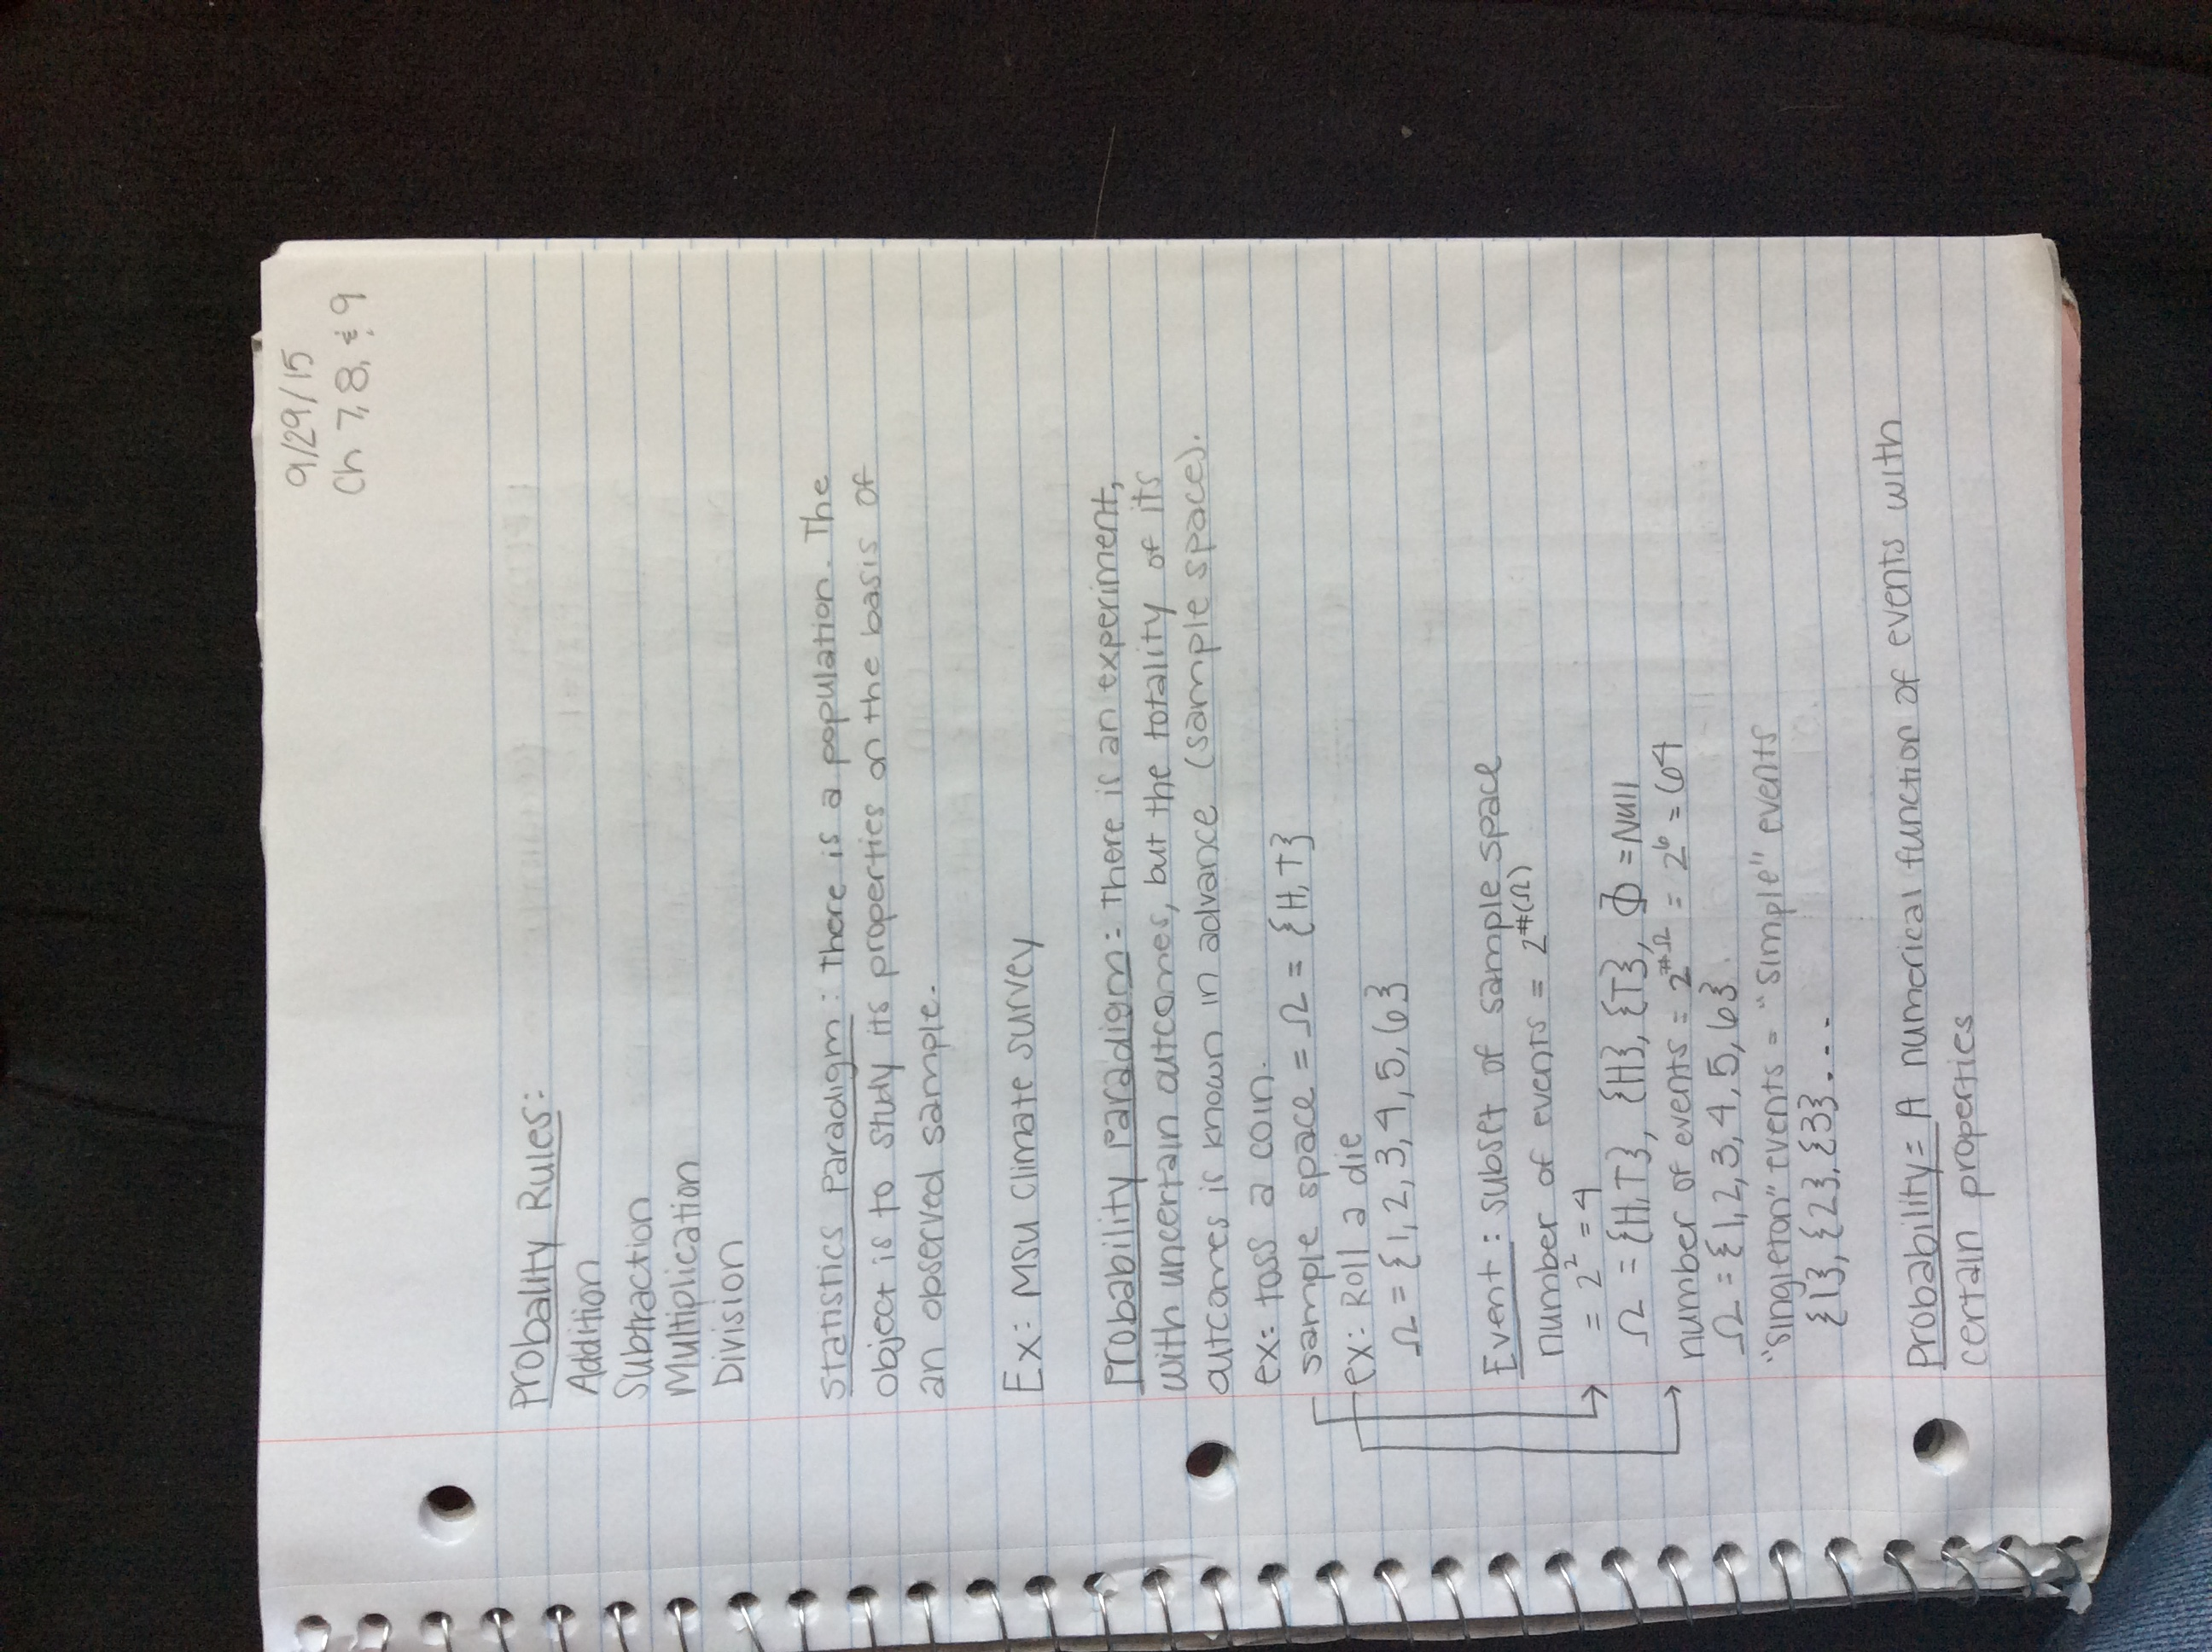 9/29/15
Ch 7, 8, & 9
Probality Rules:
Addition
Subtraction
Multiplication
Division
Statistics Paradigm: there is a population. The
object is to study its properties on the basis of
an observed sample.
Ex: MSU Climate Survey
Probability Paradigm: There is an experiment,
with uncertain outcomes, but the totality of its
outcomes is known in advance (sample space).
ex: toss a coin.
sample space = Ω = {H, T}
ex: Roll a die
Ω = {1, 2, 3, 4, 5, 6}
Event: subset of sample space
number of events = 2^#(Ω)
= 2² = 4
Ω = {H, T}, {H}, {T}, Φ = Null
number of events = 2^#Ω = 2⁶ = 64
Ω = {1, 2, 3, 4, 5, 6}.
"Singleton" events = "simple" events
{1}, {2}, {3}, ...
Probability = A numerical function of events with
certain properties